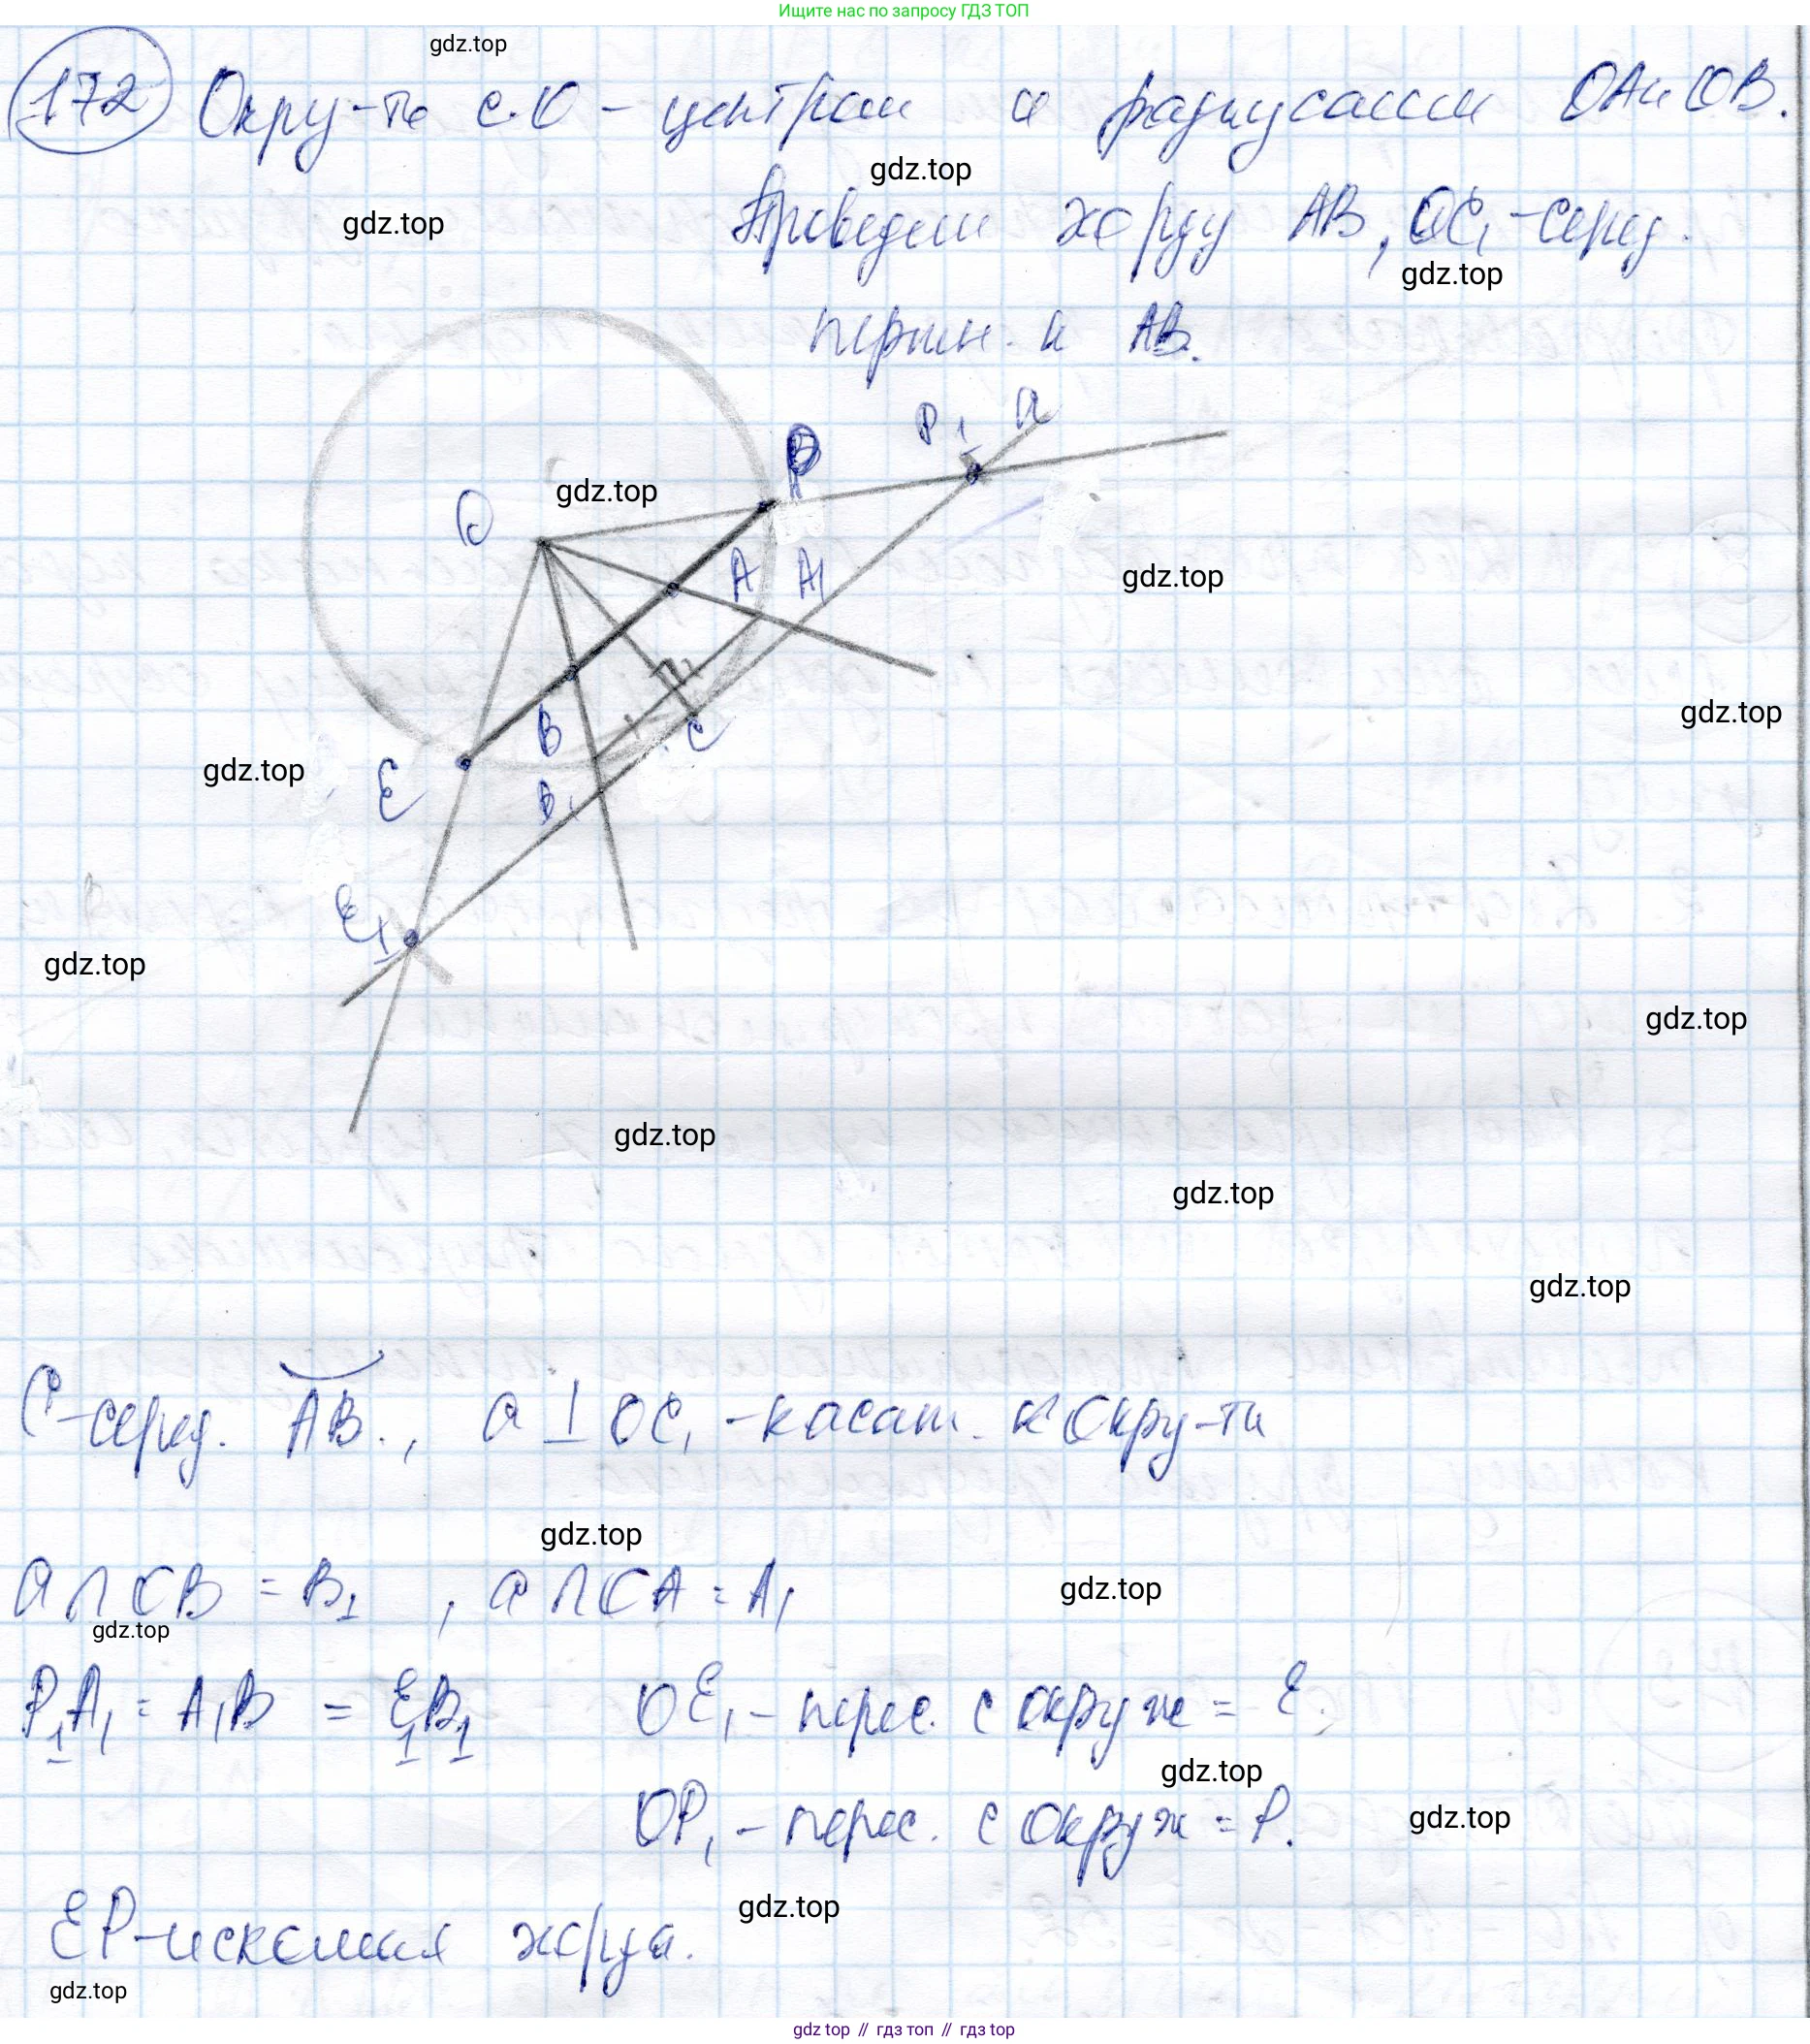 Ищите нас по запросу ГДЗ ТОП
gdz.top
172 Окру-ть с.О - центром и радиусами OA и OB.
gdz.top
Проведем хорду AB, OC₁ - серед.
gdz.top
gdz.top
перпен. к AB.
P₁ a
P
O
gdz.top
A A₁
gdz.top
gdz.top
B
C
gdz.top
E
B₁
E₁
gdz.top
gdz.top
gdz.top
gdz.top
gdz.top
C - серед. AB., a ⊥ OC₁ - касат. к окру-ти
gdz.top
a ∩ OB = B₁ , a ∩ OA = A₁
gdz.top
gdz.top
P₁A₁ = A₁B = E₁B₁ OE₁ - перес. с окруж = E.
gdz.top
OP₁ - перес. с окруж = P.
gdz.top
gdz.top
EP - искомая хорда.
gdz.top
gdz top // гдз топ // гдз top